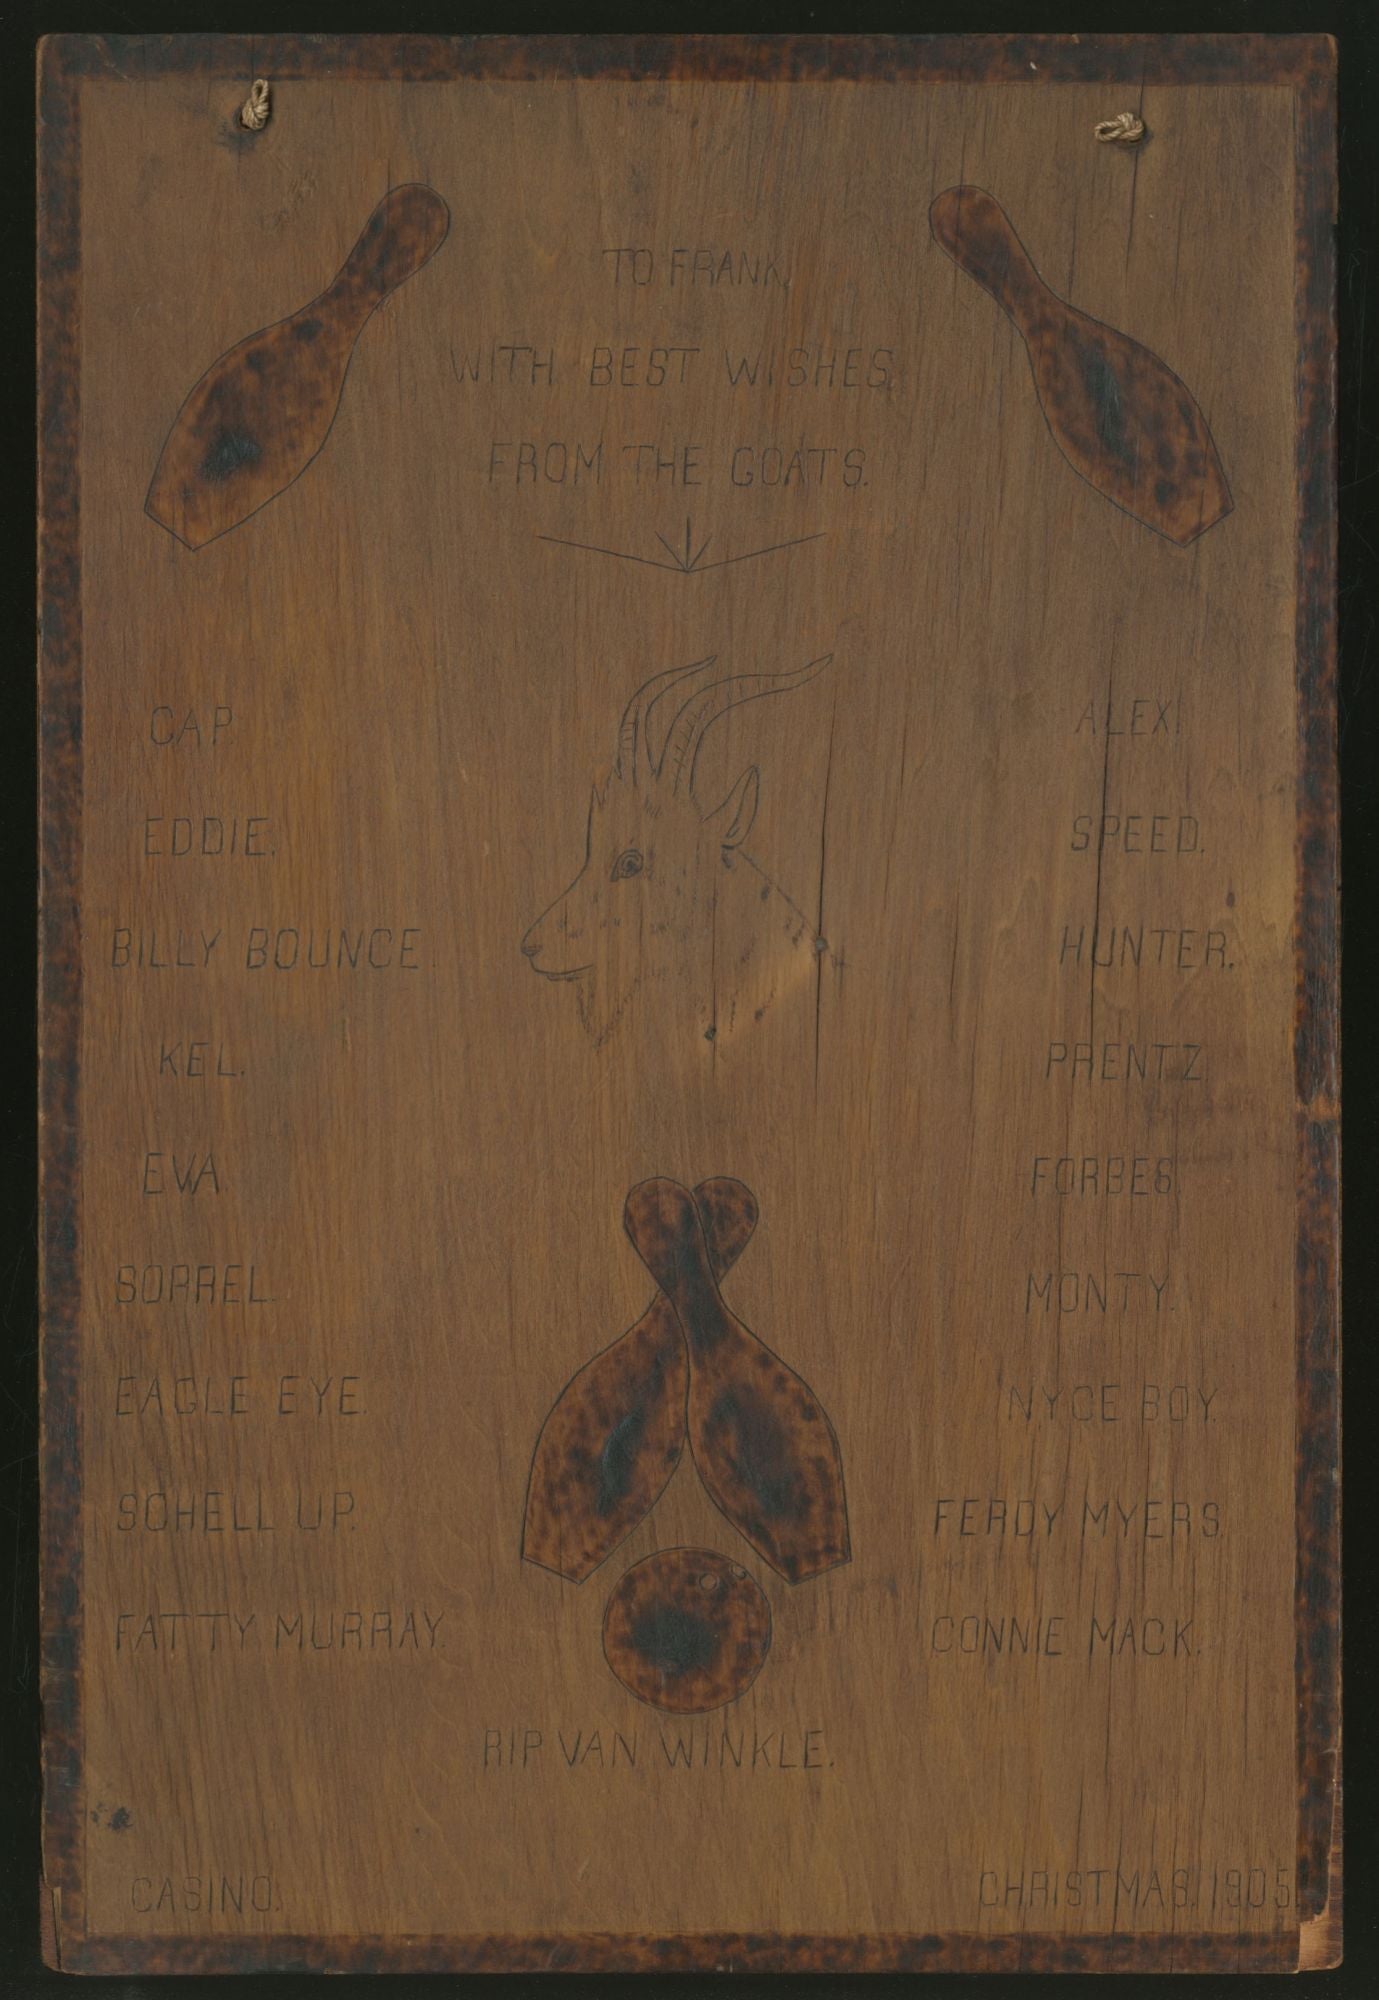 TO FRANK,
WITH BEST WISHES,
FROM THE GOATS.
CAP.
EDDIE.
BILLY BOUNCE.
KEL.
EVA.
SORREL.
EAGLE EYE.
SCHELL UP.
FATTY MURRAY.
ALEX.
SPEED.
HUNTER.
PRENTZ.
FORBES.
MONTY.
NYCE BOY.
FERDY MYERS.
CONNIE MACK.
RIP VAN WINKLE.
CASINO.
CHRISTMAS. 1905.